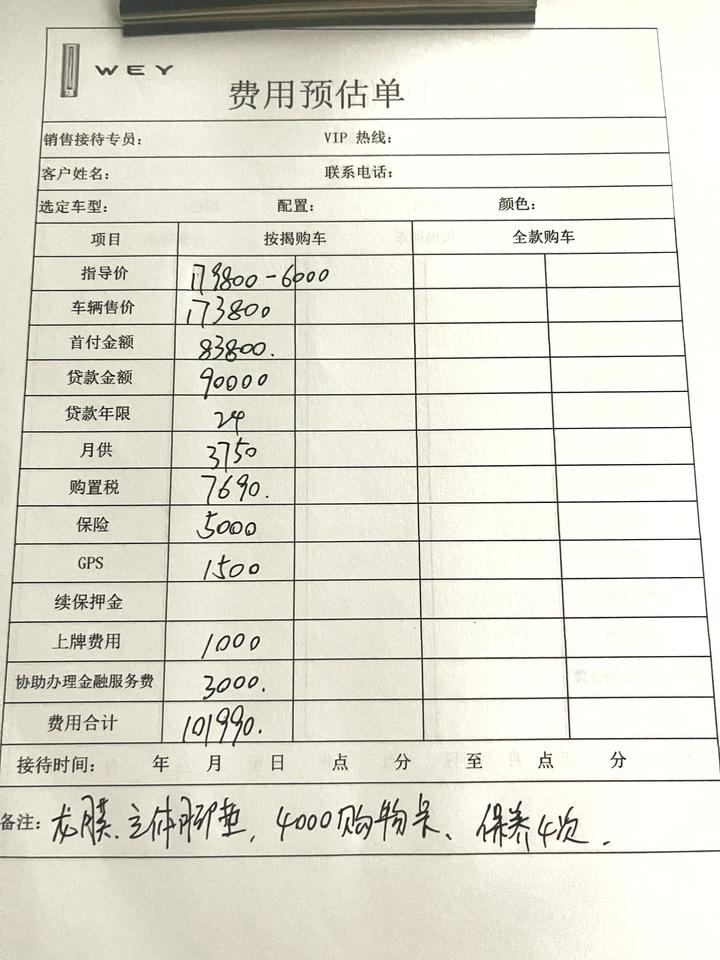 WEY
费用预估单
销售接待专员: VIP 热线:
客户姓名: 联系电话:
选定车型: 配置: 颜色:
项目 按揭购车 全款购车
指导价 179800-6000
车辆售价 173800
首付金额 83800.
贷款金额 90000
贷款年限 24
月供 3750
购置税 7690.
保险 5000
GPS 1500
续保押金
上牌费用 1000
协助办理金融服务费 3000.
费用合计 101990.
接待时间: 年 月 日 点 分 至 点 分
备注: 龙膜、立体脚垫, 4000购物卡、保养4次.